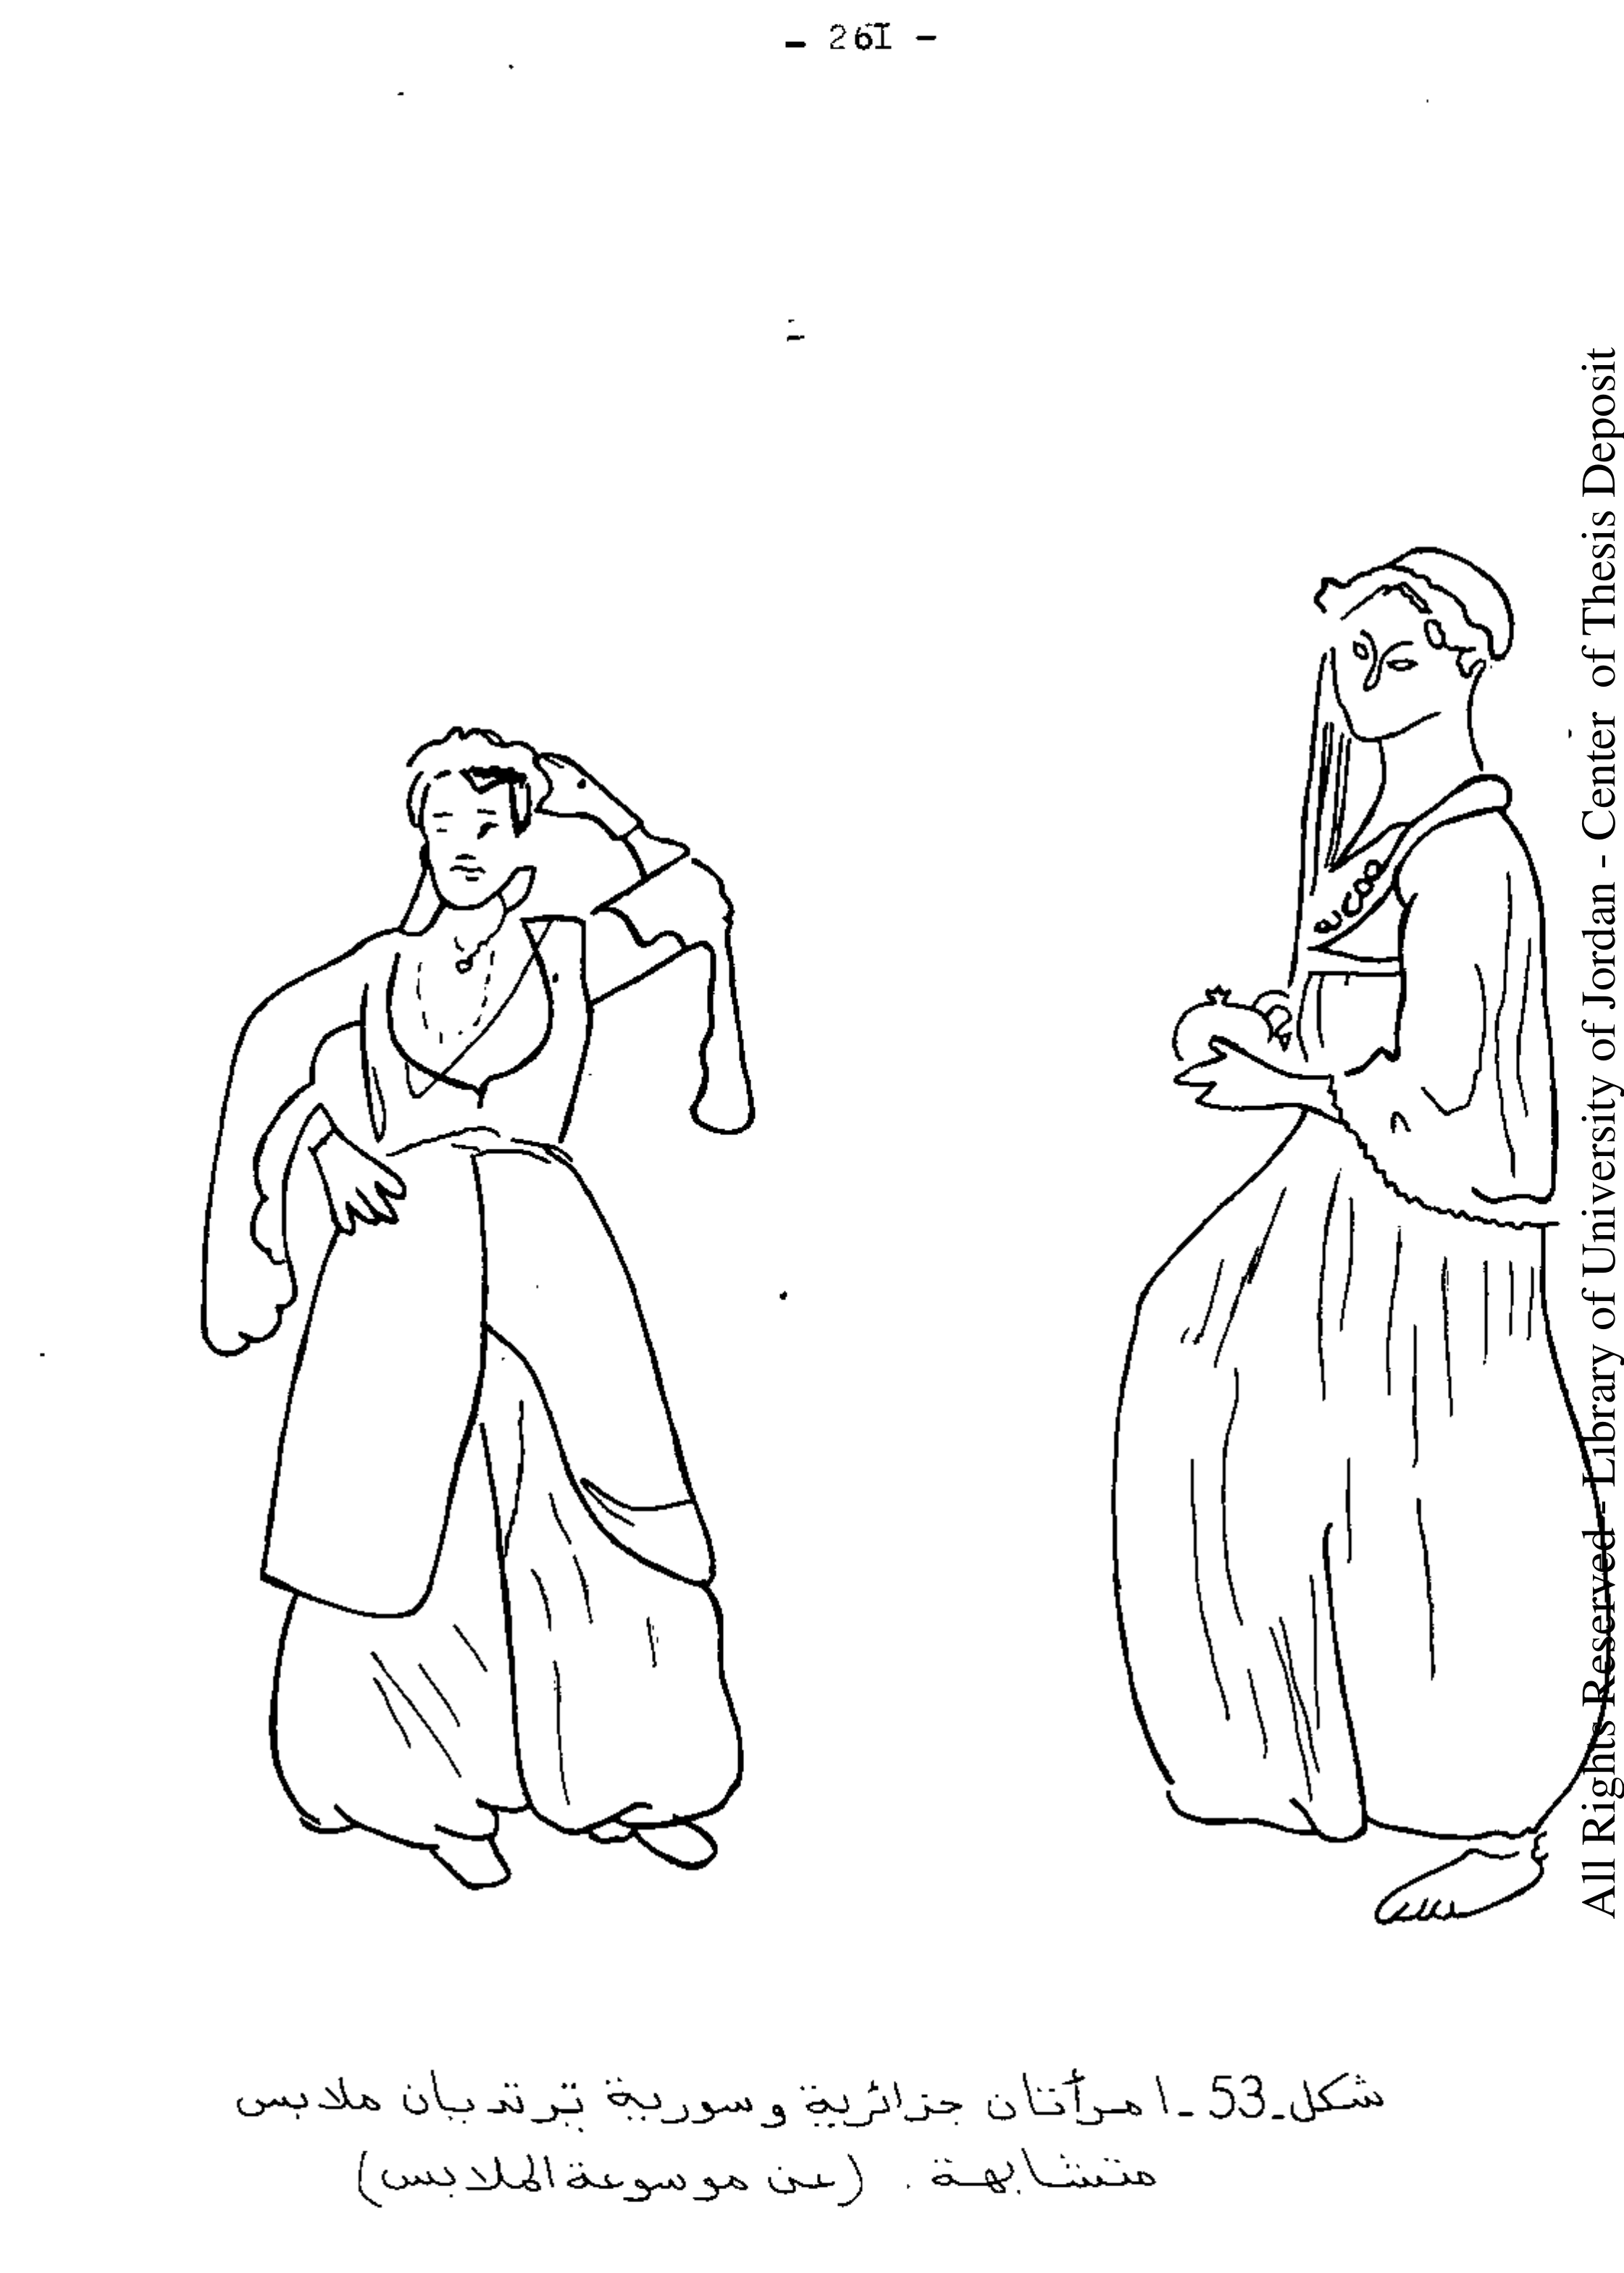 - 261 -
All Rights Reserved - Library of University of Jordan - Center of Thesis Deposit
شكل-53- امرأتان جزائرية وسورية ترتديان ملابس
متشابهة. (عن موسوعة الملابس)